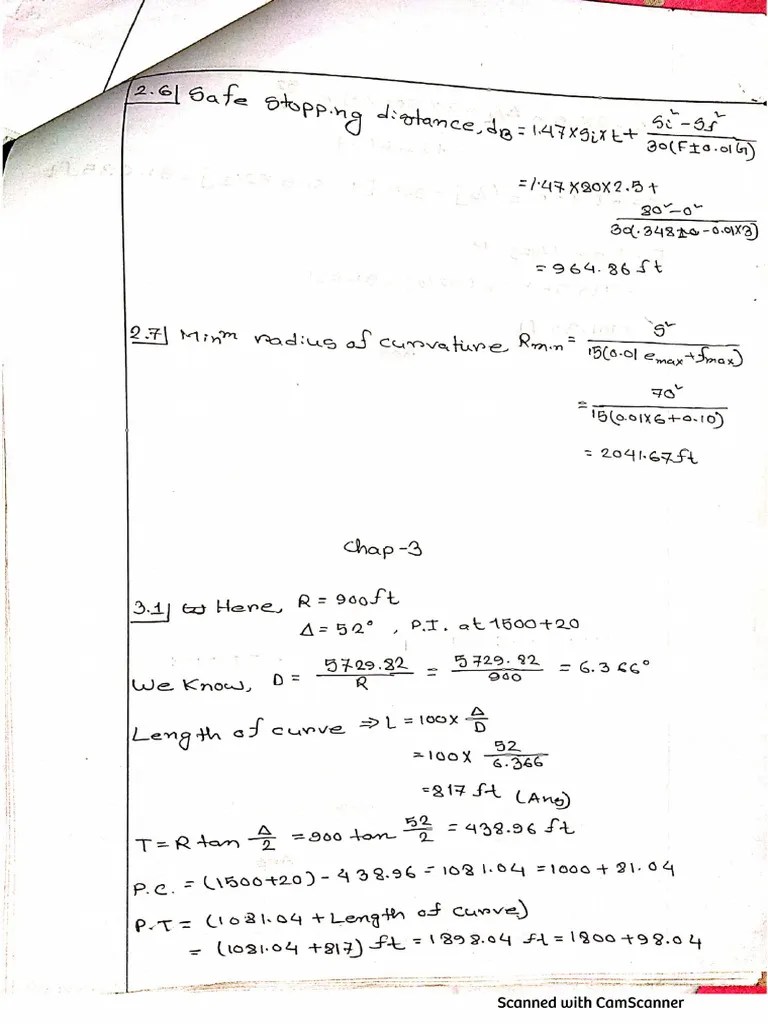 2.6| Safe stopping distance, dB = 1.47×Si×t + (Si² - Sf²)/(30(F±0.01G))
= 1.47×80×2.5 +
(80² - 0²)/(30(.348 - 0.01×3))
= 964.86 ft
2.7| Minm radius of curvature Rmin = S²/(15(0.01 emax + fmax))
= 70²/(15(0.01×6+0.10))
= 2041.67 ft
Chap-3
3.1| Here, R = 900ft
Δ = 52°, P.I. at 1500+20
We Know, D = 5729.82/R = 5729.82/900 = 6.366°
Length of curve ⇒ L = 100× Δ/D
= 100× 52/6.366
= 817 ft (Ans)
T = R tan Δ/2 = 900 tan 52/2 = 438.96 ft
P.C. = (1500+20) - 438.96 = 1081.04 = 1000 + 81.04
P.T = (1081.04 + Length of curve)
= (1081.04 + 817) ft = 1898.04 ft = 1800 + 98.04
Scanned with CamScanner